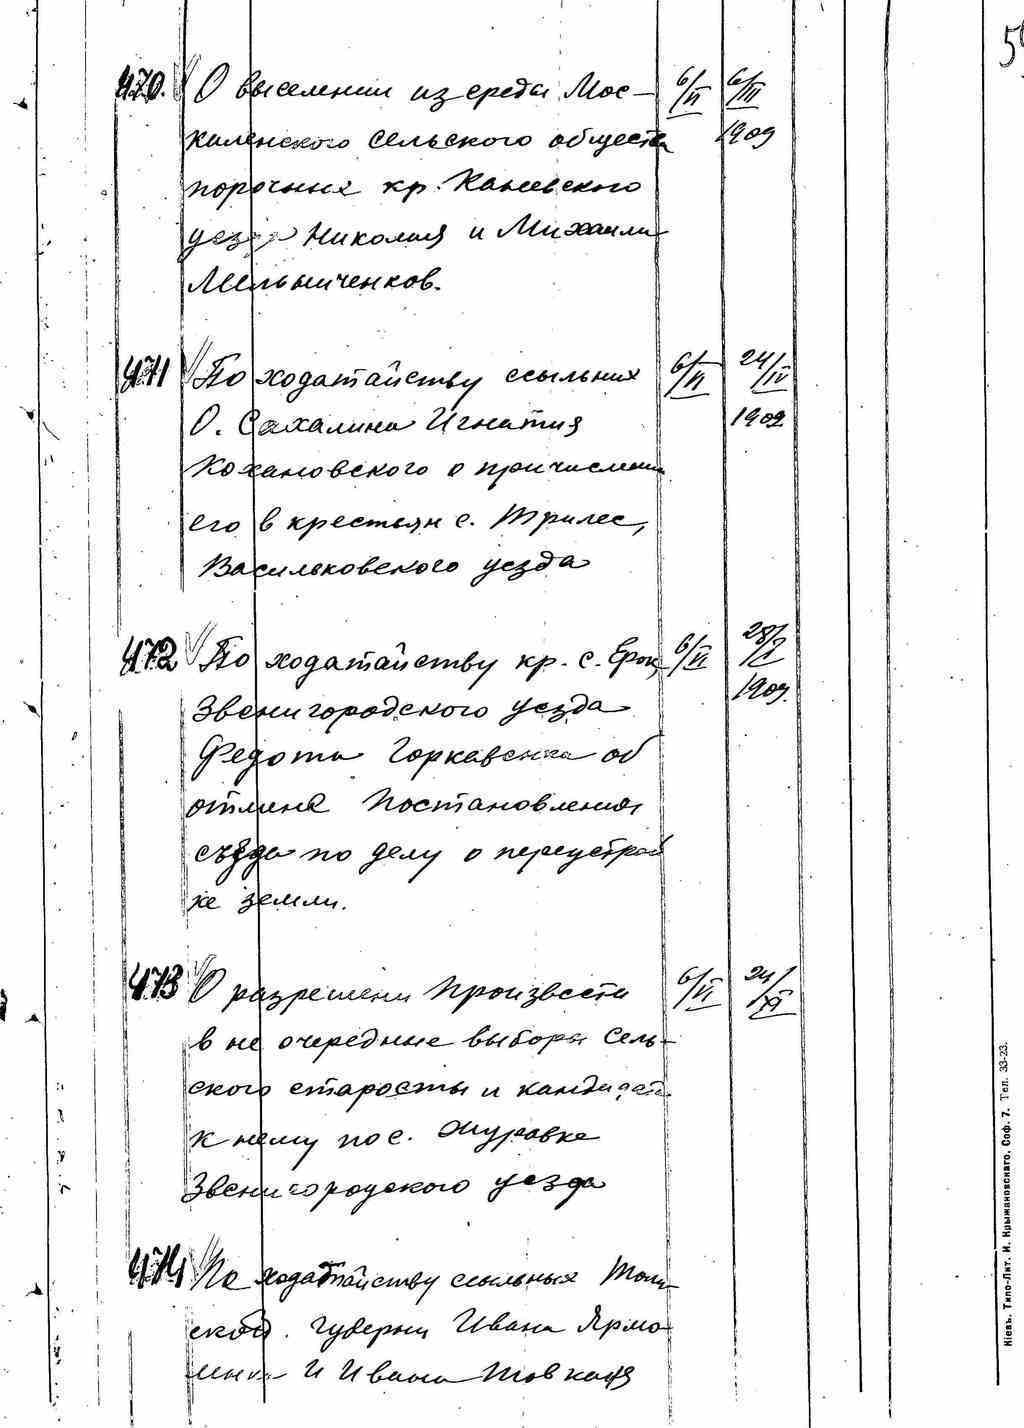 470. О выселении из среды Мос- 6/VI 6/III
каленского сельского общества 1909
порочных кр. Каневского
уезда Николая и Михаила
Мельниченков.
471 По ходатайству ссыльных 6/VI 24/IV
О. Сахалина Игнатия 1909
Кохановского о причислении
его в крестьян с. Трилес,
Васильковского уезда
472 По ходатайству кр. с. Ерок, 6/VI 28/I
Звенигородского уезда 1909.
Федота Горкавенка об
отмене постановления
съезда по делу о переустрой
ке земли.
473 О разрешени произвести 6/VI 24/XI
в не очередные выборы сель-
ского старосты и кандидата
к нему по с. Журавке
Звенигородского уезда
474 По ходатайству ссыльных Том
ской. губерни Ивана Ярмо
и Ивана Товкача
Кіевъ. Типо-Лит. И. Крыжановскаго, Соф. 7. Тел. 33-23.